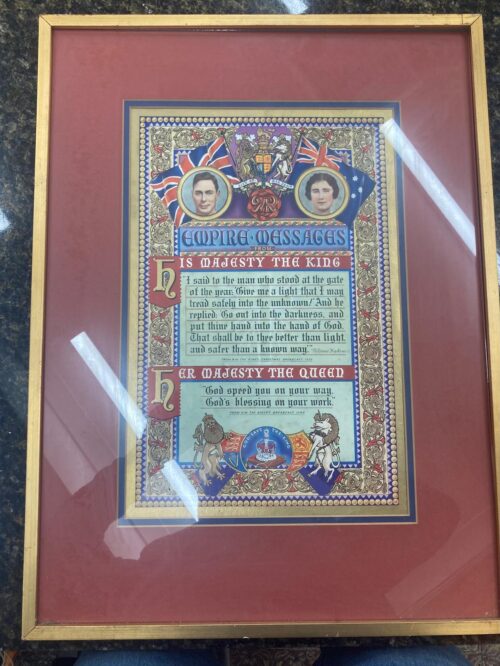 EMPIRE·MESSAGES
FROM
HIS MAJESTY THE KING
"I said to the man who stood at the gate
of the year: Give me a light that I may
tread safely into the unknown! And he
replied: Go out into the darkness, and
put thine hand into the hand of God.
That shall be to thee better than light,
and safer than a known way."
HER MAJESTY THE QUEEN
"God speed you on your way,
God's blessing on your work."